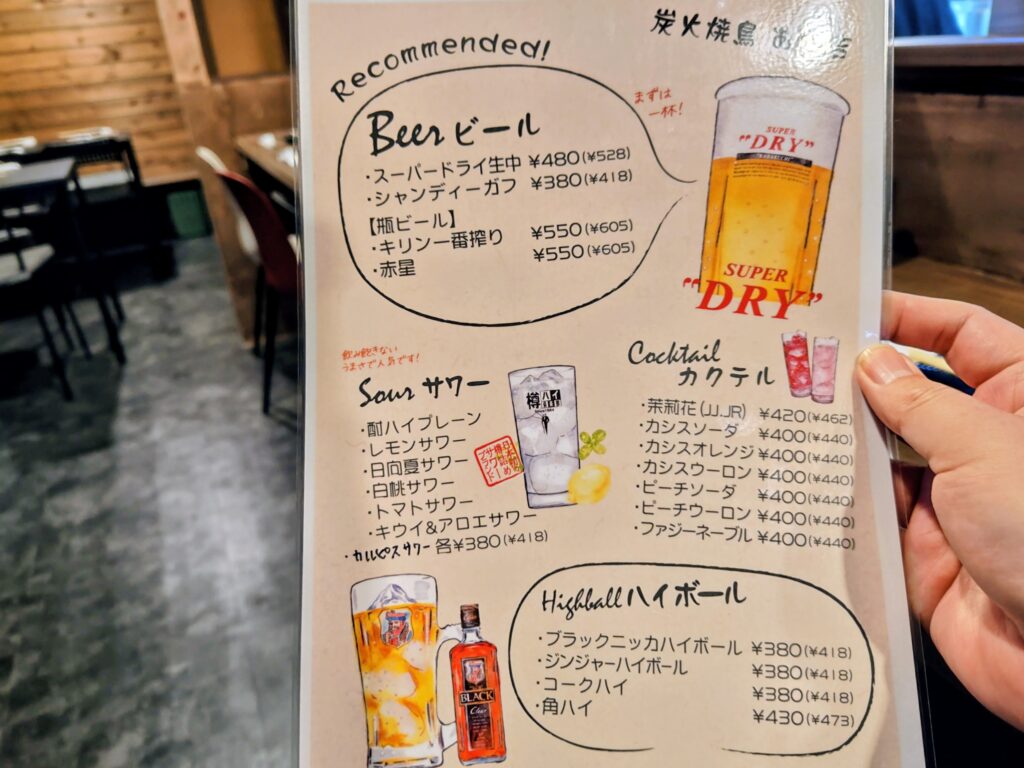 炭火焼鳥
Recommended!
まずは
一杯!
Beer ビール
・スーパードライ生中 ¥480(¥528)
・シャンディーガフ ¥380(¥418)
【瓶ビール】
・キリン一番搾り ¥550(¥605)
・赤星 ¥550(¥605)
SUPER
"DRY"
SUPER
"DRY"
飲み飽きない
うまさで人気です!
Sour サワー
・酎ハイプレーン
・レモンサワー
・日向夏サワー
・白桃サワー
・トマトサワー
・キウイ&アロエサワー
・カルピスサワー 各¥380(¥418)
樽ハイ
Cocktail
カクテル
・茉莉花(JJ.JR) ¥420(¥462)
・カシスソーダ ¥400(¥440)
・カシスオレンジ ¥400(¥440)
・カシスウーロン ¥400(¥440)
・ピーチソーダ ¥400(¥440)
・ピーチウーロン ¥400(¥440)
・ファジーネーブル ¥400(¥440)
Highball ハイボール
・ブラックニッカハイボール ¥380(¥418)
・ジンジャーハイボール ¥380(¥418)
・コークハイ ¥380(¥418)
・角ハイ ¥430(¥473)
BLACK
Clear